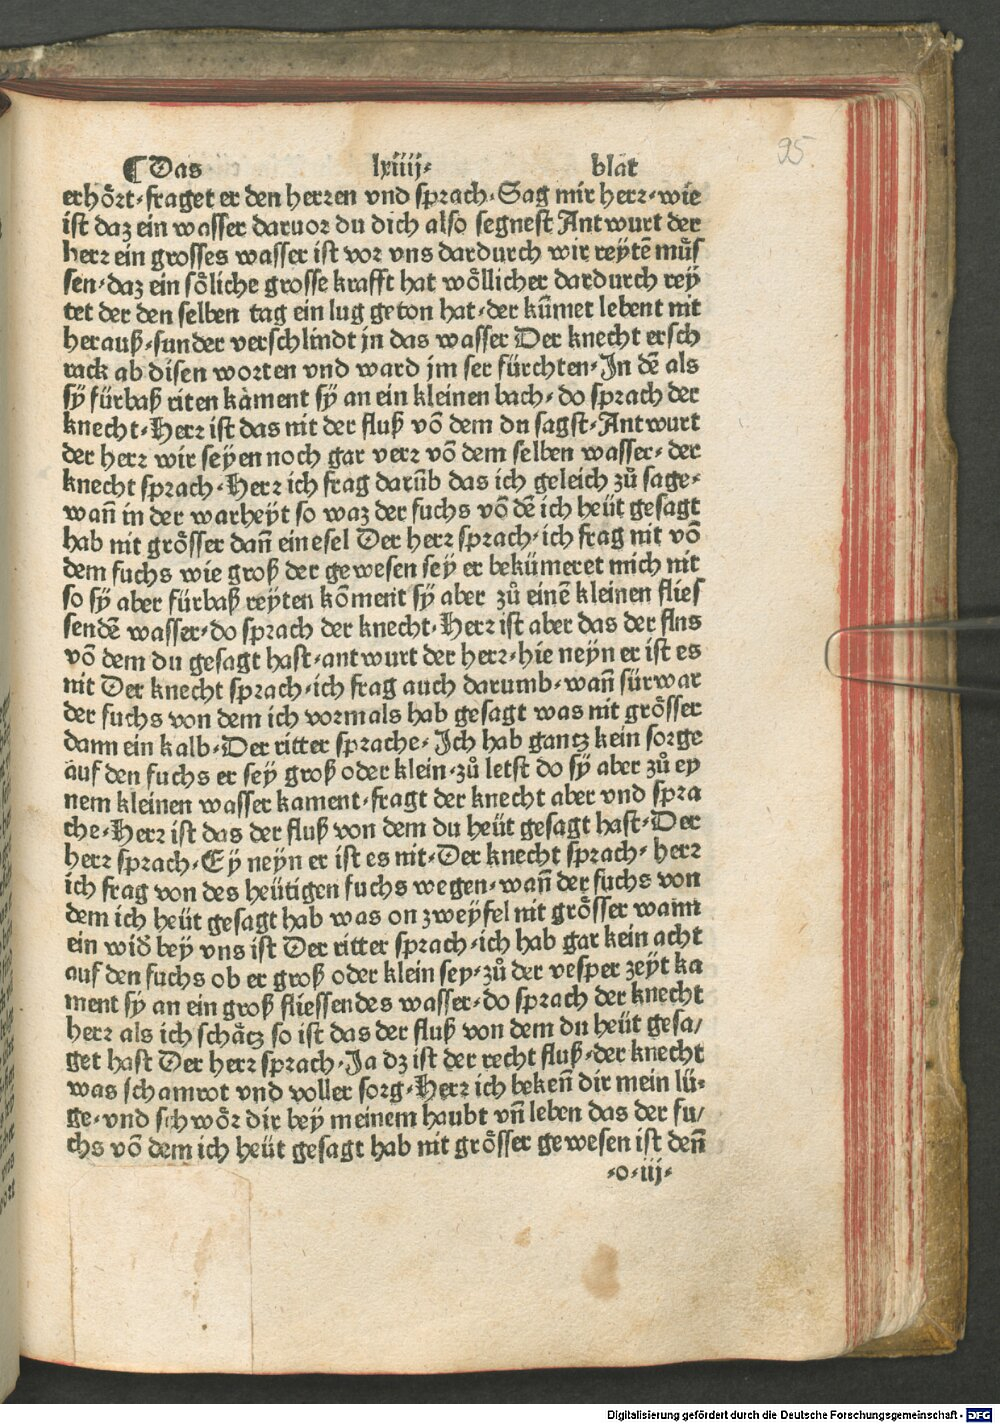 ¶Das lxiiij· blat
95
erhoͤrt·fraget er den herren vnd sprach·Sag mir herr·wie
ist daz ein wasser daruor du dich also segnest Antwurt der
herr ein grosses wasser ist vor vns dardurch wir reytē muͤs
sen·daz ein soͤliche grosse krafft hat woͤllicher dardurch rey
tet der den selben tag ein lug geton hat·der kūmet lebent nit
herauß·sunder verschlindt in das wasser Der knecht ersch
rack ab disen worten vnd ward im ser fürchten·In dē als
sy̆ fürbaß riten kament sy̆ an ein kleinen bach·do sprach der
knecht·Herr ist das nit der fluß vō dem du sagst·Antwurt
der herr wir seyen noch gar verr vō dem selben wasser·der
knecht sprach·Herr ich frag darūb das ich geleich zů sage·
wañ in der warheyt so waz der fuchs vō dē ich heüt gesagt
hab nit groͤsser dañ ein esel Der herr sprach·ich frag nit vō
dem fuchs wie groß der gewesen sey er bekümeret mich nit
so sy̆ aber fürbaß reyten kōment sy̆ aber zů einē kleinen flies
sendē wasser·do sprach der knecht·Herr ist aber das der flns
vō dem du gesagt hast·antwurt der herr·hie neyn er ist es
nit Der knecht sprach·ich frag auch darumb·wañ fürwar
der fuchs von dem ich vormals hab gesagt was nit groͤsser
dann ein kalb·Der ritter sprache·Ich hab gantz kein sorge
auf den fuchs er sey groß oder klein·zů letst do sy̆ aber zů ey
nem kleinen wasser kament·fragt der knecht aber vnd spra
che·Herr ist das der fluß von dem du heüt gesagt hast·Der
herr sprach·Ey neyn er ist es nit·Der knecht sprach·herr
ich frag von des heütigen fuchs wegen·wañ der fuchs von
dem ich heüt gesagt hab was on zweyfel nit groͤsser wann
ein wid̄ bey vns ist Der ritter sprach·ich hab gar kein acht
auf den fuchs ob er groß oder klein sey·zů der vesper zeyt ka
ment sy̆ an ein groß fliessendes wasser·do sprach der knecht
herr als ich schaͤtz so ist das der fluß von dem du heüt gesa/
get hast Der herr sprach·Ja dz ist der recht fluß·der knecht
was schamrot vnd voller sorg·Herr ich bekeñ dir mein lü·
ge·vnd schwoͤr dir bey meinem haubt vñ leben das der fu/
chs vō dem ich heüt gesagt hab nit groͤsser gewesen ist deñ
·o·iij·
Digitalisierung gefördert durch die Deutsche Forschungsgemeinschaft - DFG